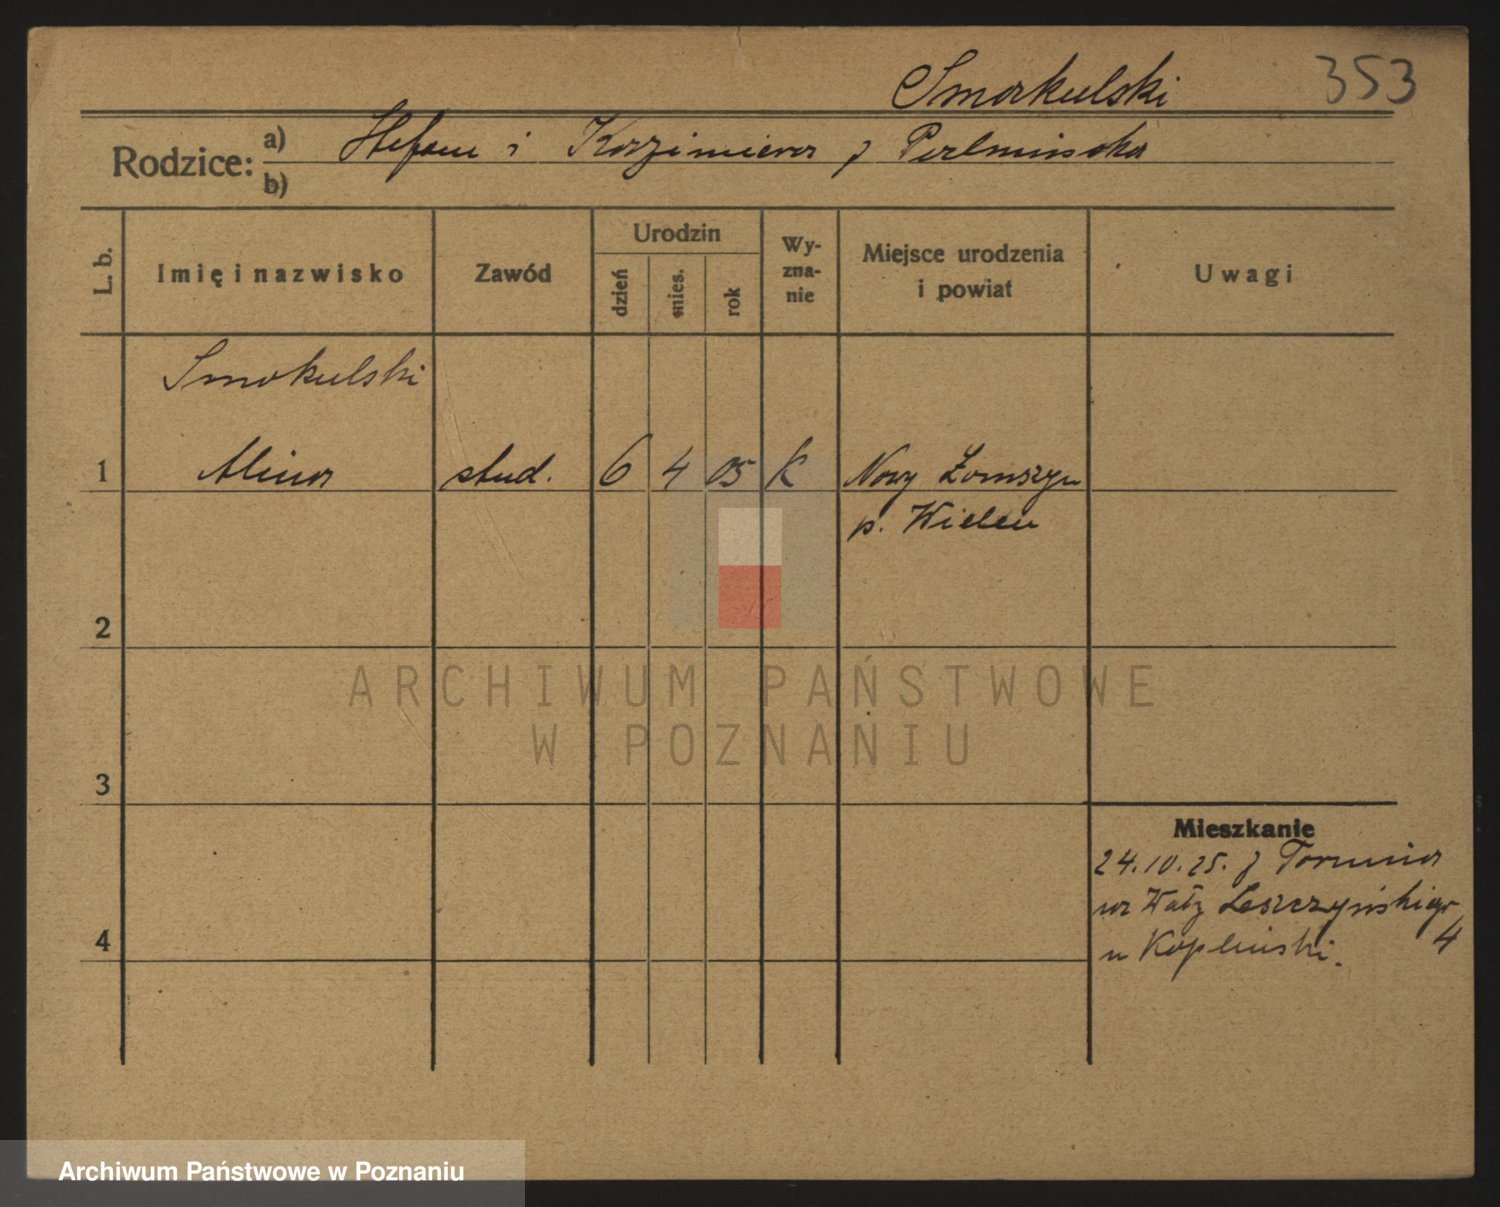 Smokulski 353
Rodzice: a) Stefan i Kazimiera z Perlińska
b)
L. b. Imię i nazwisko Zawód Urodzin dzień mies. rok Wy-zna-nie Miejsce urodzenia i powiat Uwagi
Smokulski
1 Alina stud. 6 4 05 K Nowy Łomszyn
p. Wieleń
2
3
4
ARCHIWUM PAŃSTWOWE
W POZNANIU
Mieszkanie
24.10.25. z Torunia
na Wały Leszczyńskiego
4
u Kopliński.
Archiwum Państwowe w Poznaniu